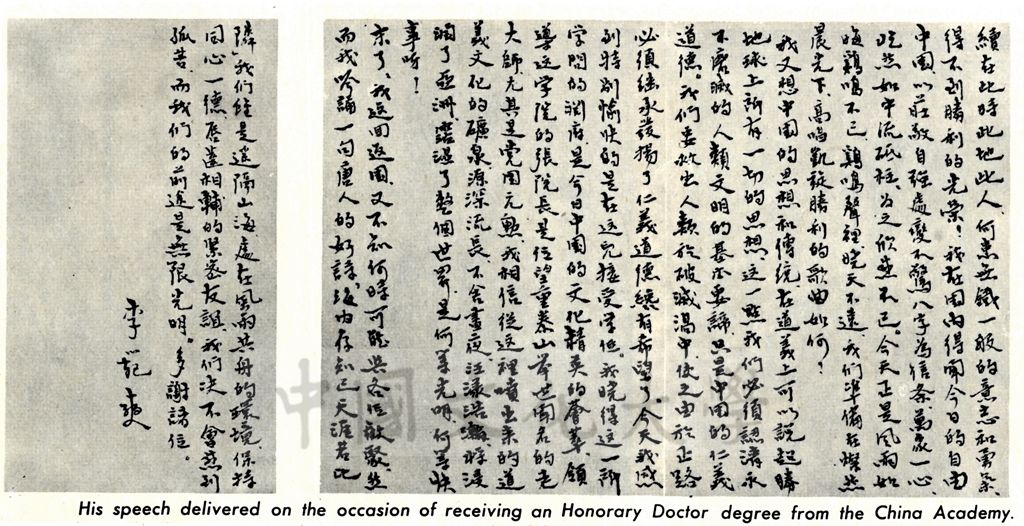 續在此時此地此人,何患無鐵一般的意志和雲集
得不到勝利的光榮!我在国内得聞今日的自由
中国,以莊敬自強處變不驚八字為信条,萬衆一心,
屹然如中流砥柱,為之欣慰不已。今天正是風雨如
晦,鷄鳴不已,鷄鳴聲裡,曉天不遠,我們準備在燦然
晨光下,高唱凱旋勝利的歌曲如何?
我又想中国的思想和傳統在道義上可以說起勝
地球上所有一切的思想,這一點我們必須認清永
不磨滅的人類文明的基本要諦,只是中国的仁義
道德。我們要救出人類於破滅渦中,使之由於正路
必須繼承發揚了仁義道德,纔有希望了。今天我感
到特別愉快的是在這兒接受学位。我曉得這一所
学問的淵府是今日中国的文化精英的薈萃,領
導這学院的張院長是位望重泰山舉世聞名的老
大師,尤其是党国元勳。我相信從這裡噴出来的道
義文化的礦泉,源深流長,不舍晝夜,汪漾浩瀚,將浸
潤了亞洲,霑浥了整個世界,是何等光明,何等快
事呀!
末了,我返回返国,又不知何時可能與各位敍聚,然
而我吟誦一句唐人的好詩,海内存知己,天涯若比
隣,我们雖是遥隔山海,處在風雨共舟的環境,保持
同心一德,唇齒相輔的緊密友誼,我們決不會感到
孤苦,而我們的前途是無限光明。多謝諸位。
李範奭
中國文化大學
His speech delivered on the occasion of receiving an Honorary Doctor degree from the China Academy.